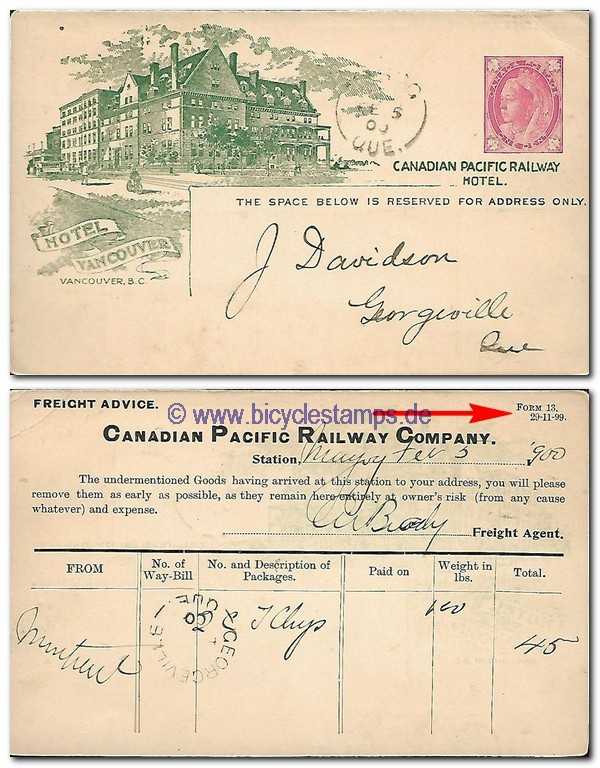 CANADIAN PACIFIC RAILWAY
HOTEL.
THE SPACE BELOW IS RESERVED FOR ADDRESS ONLY.
HOTEL
VANCOUVER
VANCOUVER, B.C.
QUE.
J Davidson
Georgeville
Que
FREIGHT ADVICE.
© www.bicyclestamps.de
FORM 13.
29-11-99.
CANADIAN PACIFIC RAILWAY COMPANY.
Station, Feb 5 1900
The undermentioned Goods having arrived at this station to your address, you will please
remove them as early as possible, as they remain here entirely at owner's risk (from any cause
whatever) and expense.
Brody Freight Agent.
FROM No. of Way-Bill No. and Description of Packages. Paid on Weight in lbs. Total.
Montreal 100 45
GEORGEVILLE
QUE